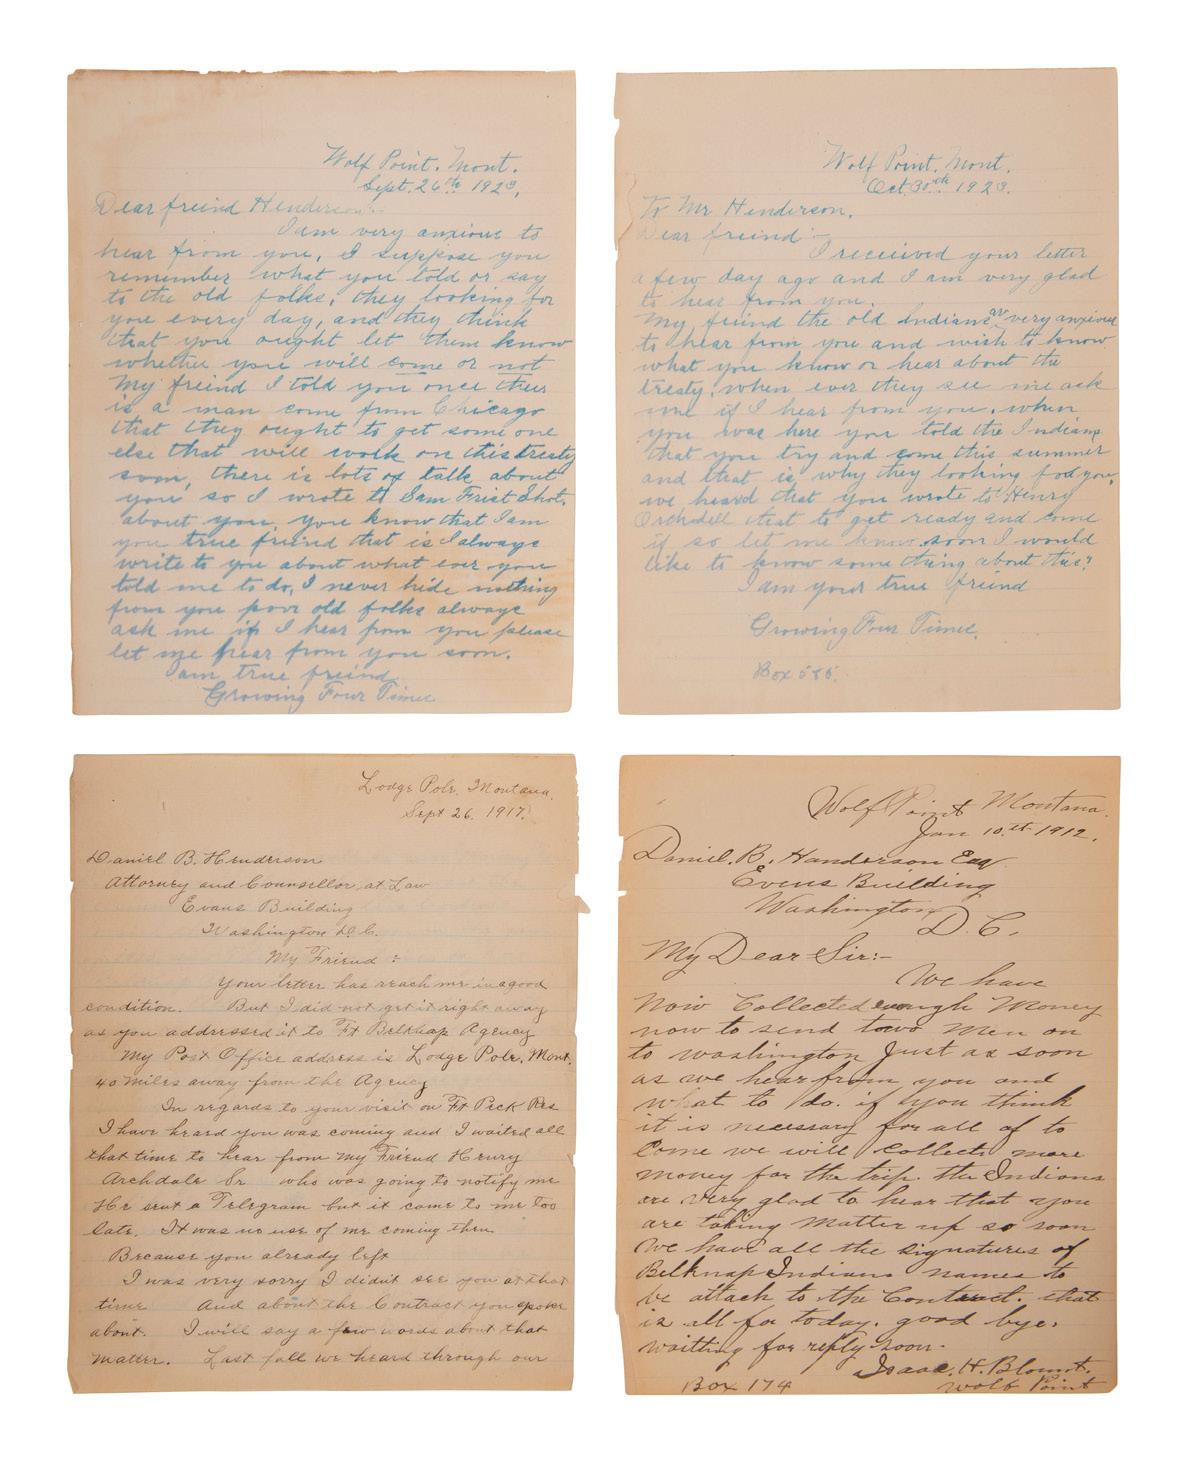 Wolf Point. Mont.
Sept. 26th 1923,
Dear freind Henderson:-
I am very anxious to
hear from you, I suppose you
remember what you told or say
to the old folks, they looking for
you every day, and they think
that you ought let them know
whether you will come or not
My freind I told you once thers
is a man come from Chicago
that they ought to get some one
else that will work on this treaty
soon, there is lots of talk about
you so I wrote to Sam Frist Shot,
about you, you know that I am
you true friend that is I always
write to you about what ever you
told me to do, I never hide nothing
from you poor old folks always
ask me if I hear from you please
let me hear from you soon.
I am true freind
Growing Four Times
Wolf Point, Mont.
Oct. 30th 1923.
To Mr Henderson,
Dear freind:-
I received your letter
a few day ago and I am very glad
to hear from you.
My freind the old Indians are very anxious
to hear from you and wish to know
what you know or hear about the
treaty, when ever they see me ask
me if I hear from you, when
you was here you told the Indians
that you try and come this summer
and that is why they looking for you,
we heard that you wrote to Henry
Orchdell that to get ready and come
if so let me know soon I would
like to know some thing about this?
I am your true friend
Growing Four Times,
Box
Lodge Pole, Montana.
Sept 26. 1917.
Daniel B. Henderson
Attorney and Counsellor at Law
Evans Building
Washington D.C.
My Friend:
Your letter has reach me in a good
condition. But I did not get it right away
as you addressed it to Ft Belknap Agency
My Post Office address is Lodge Pole, Mont.
40 miles away from the Agency
In regards to your visit on Ft Peck Res
I have heard you was coming and I waited all
that time to hear from my Friend Henry
Archdale Sr who was going to notify me
He sent a Telegram but it came to me too
late. It was no use of me coming then
Because you already left
I was very sorry I didn't see you at that
time And about the Contract you spoke
about. I will say a few words about that
matter. Last fall we heard through our
Wolf Point Montana.
Jan 10.th 1912.
Daniel. B. Handerson Esq
Evens Building
Washington
D.C.
My Dear Sir:-
We have
Now Collected enough Money
now to send two Men on
to Washington Just as soon
as we hear from you and
what to do. if you think
it is necessary for all of to
Come we will Collect more
money for the trip. the Indians
are very glad to hear that you
are taking Matter up so soon
We have all the signatures of
Belknap Indians names to
be attach to the Contract. that
is all for today. good bye.
waitting for reply soon.
Isaac. H. Blount.
Box 174 Wolf Point